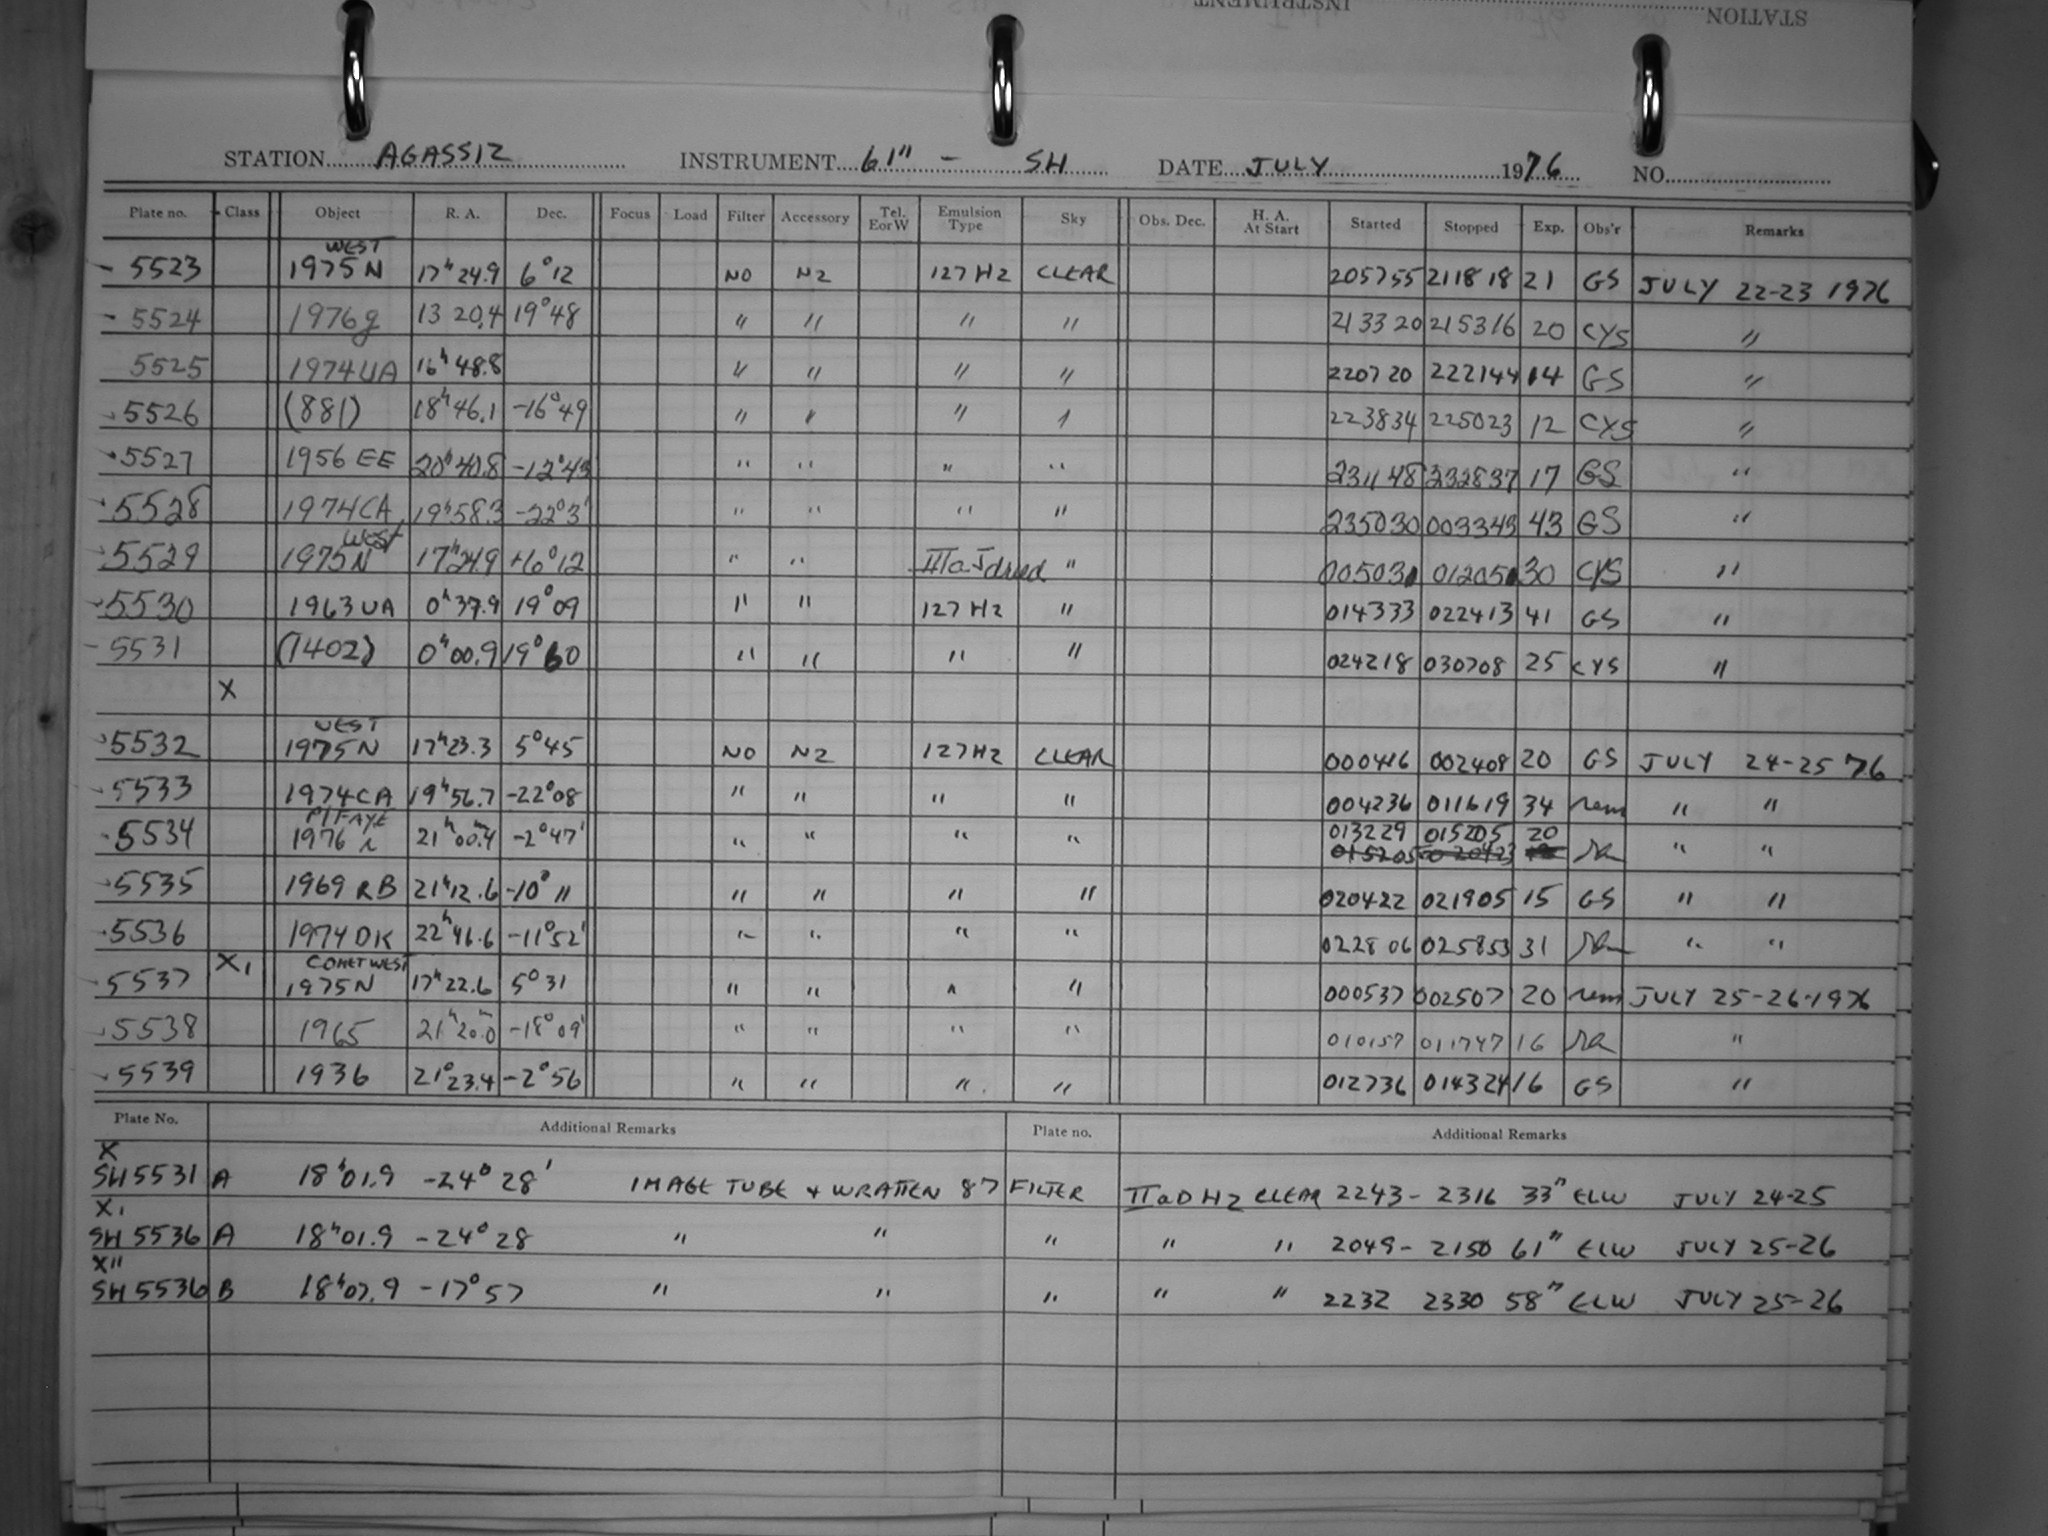 STATION
INSTRUMENT
STATION AGASSIZ INSTRUMENT 61" - SH DATE JULY 1976 NO.
Plate no. Class Object R. A. Dec. Focus Load Filter Accessory Tel. E or W Emulsion Type Sky Obs. Dec. H. A. At Start Started Stopped Exp. Obs'r Remarks
WEST
- 5523 1975 N 17ʰ 24.9 6° 12 NO N2 127 H2 CLEAR 205755 211818 21 GS JULY 22-23 1976
- 5524 1976g 13 20.4 19° 48 " " " " 213320 215316 20 CYS "
5525 1974 UA 16ʰ 48.8 " " " " 220720 222144 14 GS "
5526 (881) 18ʰ 46.1 -16° 49 " " " " 223834 225023 12 CYS "
5527 1956 EE 20ʰ 40.8 -12° 43 " " " " 231148 232837 17 GS "
5528 1974 CA 19ʰ 58.3 -22° 3' " " " " 235030 003343 43 GS "
WEST
5529 1975 N 17ʰ 24.9 +6° 12 " " IIIaJ dried " 005030 012050 30 CYS "
5530 1963 UA 0ʰ 37.9 19° 09 " " 127 H2 " 014333 022413 41 GS "
5531 (1402) 0ʰ 00.9 19° 60 " " " " 024218 030708 25 CYS "
X
WEST
5532 1975 N 17ʰ 23.3 5° 45 NO N2 127 H2 CLEAR 000416 002408 20 GS JULY 24-25 76
5533 1974 CA 19ʰ 56.7 -22° 08 " " " " 004236 011619 34 rem " "
P/FAYE 013229 015205 20
5534 1976 21ʰ 00.4ᵐ -2° 47' " " " " 015205 020423 " "
5535 1969 RB 21ʰ 12.6 -10° 11 " " " " 020422 021905 15 GS " "
5536 1974 OK 22ʰ 46.6 -11° 52' " " " " 022806 025853 31 " "
X₁ COMET WEST
5537 1975 N 17ʰ 22.6 5° 31 " " " " 000537 002507 20 rem JULY 25-26-1976
5538 1965 21ʰ 20.0ᵐ -18° 09' " " " " 010157 011747 16 "
5539 1936 21° 23.4 -2° 56 " " " " 012736 014324 16 GS "
Plate No. Additional Remarks Plate no. Additional Remarks
X
SH 5531 A 18ʰ 01.9 -24° 28' IMAGE TUBE + WRATTEN 87 FILTER IIaD H2 CLEAR 2243 - 2316 33ᵐ ELW JULY 24-25
X₁
SH 5536 A 18ʰ 01.9 -24° 28 " " " " " 2049 - 2150 61ᵐ ELW JULY 25-26
X"
SH 5536 B 18ʰ 07.9 -17° 57 " " " " " 2232 2330 58ᵐ ELW JULY 25-26